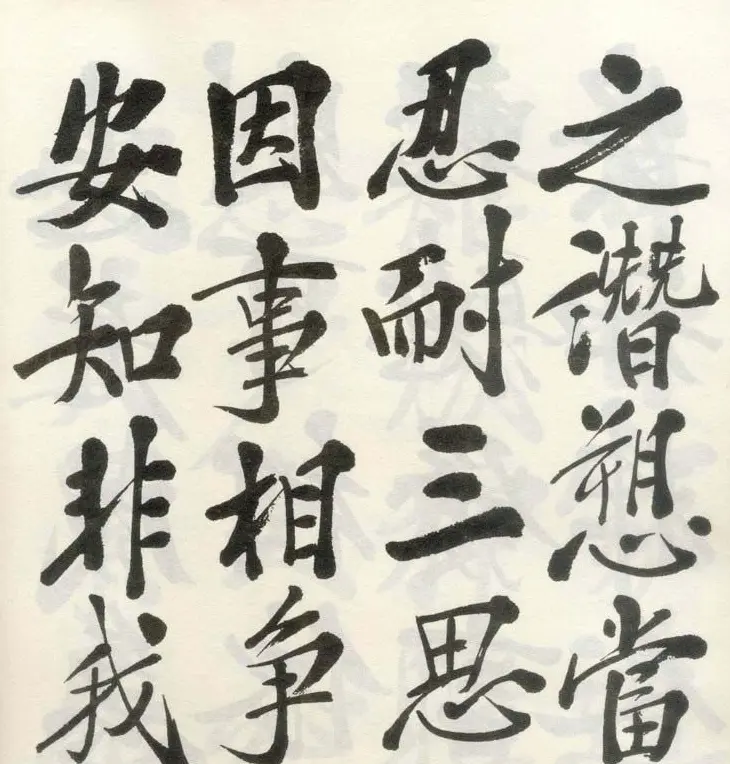 之譖愬當
忍耐三思
因事相争
安知非我